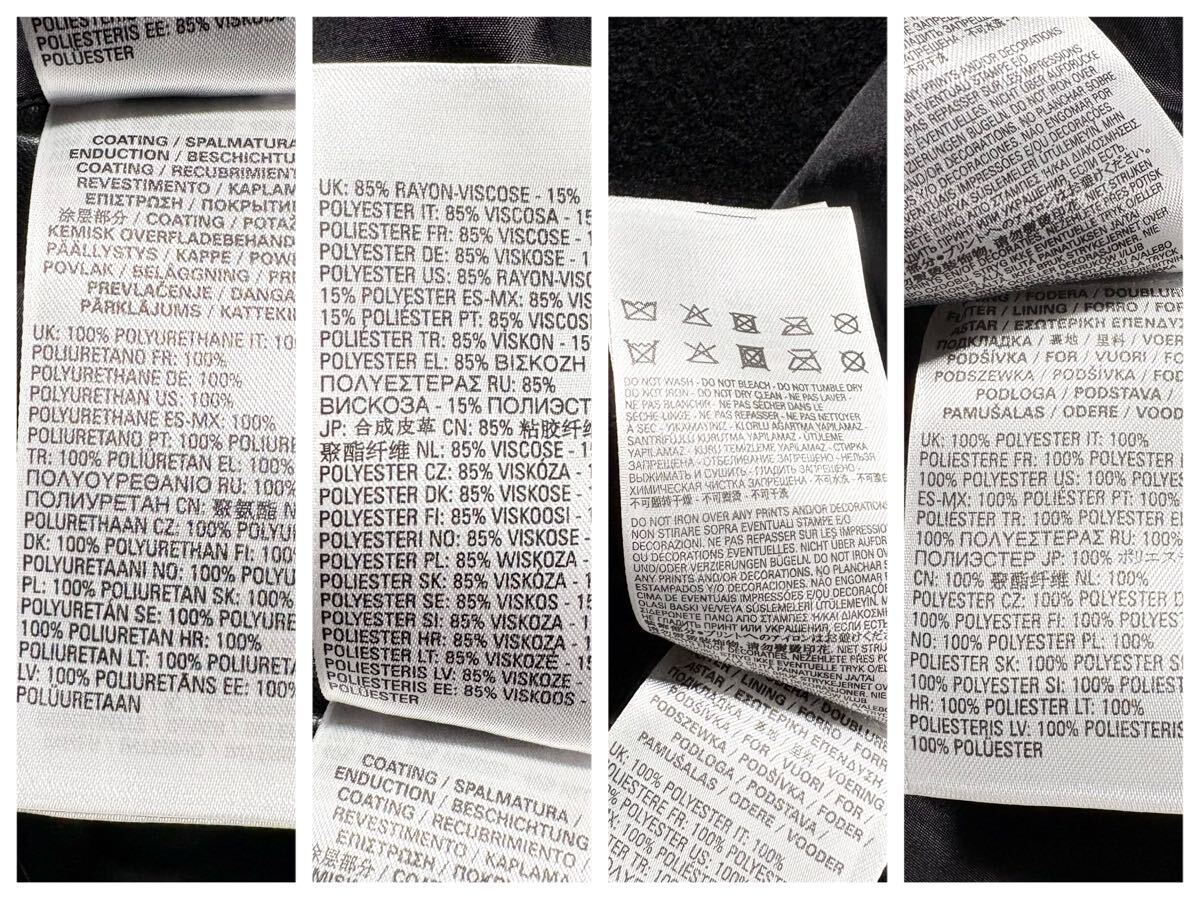 POLIESTERIS EE: 85% VISKOO
POLÜESTER
COATING / SPALMATURA
ENDUCTION / BESCHICHTU
COATING / RECUBRIMIENT
REVESTIMENTO / KAPLAM
ΕΠΙΣΤΡΩΣΗ / ПОКРЫТИ
涂层部分 / COATING / POTAZ
KEMISK OVERFLADEBEHAND
PÄÄLLYSTYS / KAPPE / POW
POVLAK / BELÄGGNING / PRE
PREVLAČENJE / DANGA
PĀRKLĀJUMS / KATTEKI
UK: 100% POLYURETHANE IT: 10
POLIURETANO FR: 100%
POLYURETHANE DE: 100%
POLYURETHAN US: 100%
POLYURETHANE ES-MX: 100%
POLIURETANO PT: 100% POLIURE
TR: 100% POLİÜRETAN EL: 100%
ΠΟΛΥΟΥΡΕΘΑΝΙΟ RU: 100%
ПОЛИУРЕТАН CN: 聚氨酯 N
POLYURETHAAN CZ: 100% POLYU
DK: 100% POLYURETHAN FI: 100%
POLYURETAANI NO: 100% POLYU
PL: 100% POLIURETAN SK: 100%
POLYURETÁN SE: 100% POLYURE
100% POLIURETAN HR: 100%
POLIURETAN LT: 100% POLIURETA
LV: 100% POLIURETĀNS EE: 100%
POLÜURETAAN
UK: 85% RAYON-VISCOSE - 15%
POLYESTER IT: 85% VISCOSA - 15
POLIESTERE FR: 85% VISCOSE - 1
POLYESTER DE: 85% VISKOSE -
POLYESTER US: 85% RAYON-VISC
15% POLYESTER ES-MX: 85% VIS
15% POLIÉSTER PT: 85% VISCOS
POLIÉSTER TR: 85% VİSKON - 15
POLYESTER EL: 85% ΒΙΣΚΟΖΗ
ΠΟΛΥΕΣΤΕΡΑΣ RU: 85%
ВИСКОЗА - 15% ПОЛИЭСТ
JP: 合成皮革 CN: 85% 粘胶纤维
聚酯纤维 NL: 85% VISCOSE - 15
POLYESTER CZ: 85% VISKÓZA - 1
POLYESTER DK: 85% VISKOSE -
POLYESTER FI: 85% VISKOOSI -
POLYESTERI NO: 85% VISKOSE -
POLYESTER PL: 85% WISKOZA -
POLIESTER SK: 85% VISKÓZA - 1
POLYESTER SE: 85% VISKOS - 15
POLYESTER SI: 85% VISKOZA - 1
POLIESTER HR: 85% VISKOZA - 1
POLIESTER LT: 85% VISKOZĖ - 1
POLIESTERIS LV: 85% VISKOZE -
POLIESTERIS EE: 85% VISKOOS -
POLÜESTER
COATING / SPALMATURA /
ENDUCTION / BESCHICHTUNG
COATING / RECUBRIMIENTO /
REVESTIMENTO / KAPLAMA
ΕΠΙΣΤΡΩΣΗ / ПОКРЫ
涂层部分 / COATING /
DO NOT WASH - DO NOT BLEACH - DO NOT TUMBLE DRY
- DO NOT IRON - DO NOT DRY CLEAN - NE PAS LAVER -
NE PAS BLANCHIR - NE PAS SÉCHER DANS LE
SÈCHE-LINGE - NE PAS REPASSER - NE PAS NETTOYER
À SEC - YIKAMAYINIZ - KLORLU AĞARTMA YAPILAMAZ -
SANTRİFÜJLÜ KURUTMA YAPILAMAZ - ÜTÜLEME
YAPILAMAZ - KURU TEMİZLEME YAPILAMAZ - СТИРКА
ЗАПРЕЩЕНА - ОТБЕЛИВАНИЕ ЗАПРЕЩЕНО - НЕЛЬЗЯ
ВЫЖИМАТЬ И СУШИТЬ - ГЛАДИТЬ ЗАПРЕЩЕНО -
ХИМИЧЕСКАЯ ЧИСТКА ЗАПРЕЩЕНА - 不可水洗 - 不可漂
不可翻转干燥 - 不可熨烫 - 不可干洗
DO NOT IRON OVER ANY PRINTS AND/OR DECORATIONS
NON STIRARE SOPRA EVENTUALI STAMPE E/O
DECORAZIONI. NE PAS REPASSER SUR LES IMPRESSIO
OU DÉCORATIONS ÉVENTUELLES. NICHT ÜBER AUFDR
UND/ODER VERZIERUNGEN BÜGELN. DO NOT IRON OV
ANY PRINTS AND/OR DECORATIONS. NO PLANCHAR S
ESTAMPADOS Y/O DECORACIONES. NÃO ENGOMAR P
CIMA DE EVENTUAIS IMPRESSÕES E/OU DECORAÇÕE
OLASI BASKI VE/VEYA SÜSLEMELERİ ÜTÜLEMEYİN. M
LINING / FODERA / DOUBLURE
ASTAR / ΕΣΩΤΕΡΙΚΗ ΕΠΕΝΔΥΣΗ
ПОДКЛАДКА / 裏地 / 里料 / VOERING
PODŠÍVKA / FOR / VUORI / FOR /
PODSZEWKA / PODŠÍVKA / FODER
PODLOGA / PODSTAVA /
PAMUŠALAS / ODERE / VOODER
UK: 100% POLYESTER IT: 100%
POLIESTERE FR: 100% POLYESTER
100% POLYESTER US: 100%
ANY PRINTS AND/OR DECORATIONS.
EVENTUALI STAMPE E/O
PAS REPASSER SUR LES IMPRESSIONS
ÉVENTUELLES. NICHT ÜBER AUFDRUCKE
ZIERUNGEN BÜGELN. DO NOT IRON OVER
AND/OR DECORATIONS. NO PLANCHAR SOBRE
Y/O DECORACIONES. NÃO ENGOMAR POR
IMPRESSÕES E/OU DECORAÇÕES.
VE/VEYA SÜSLEMELERİ ÜTÜLEMEYİN. ΜΗΝ
LINING / FODERA / DOUBLUR
FUTTER / LINING / FORRO / FOR
ASTAR / ΕΣΩΤΕΡΙΚΗ ΕΠΕΝΔΥΣ
ПОДКЛАДКА / 裏地 / 里料 / VOE
PODŠÍVKA / FOR / VUORI / FO
PODSZEWKA / PODŠÍVKA / FOD
PODLOGA / PODSTAVA /
PAMUŠALAS / ODERE / VOOD
UK: 100% POLYESTER IT: 100%
POLIESTERE FR: 100% POLYESTER
100% POLYESTER US: 100% POLYES
ES-MX: 100% POLIÉSTER PT: 100%
POLIÉSTER TR: 100% POLYESTER E
100% ΠΟΛΥΕΣΤΕΡΑΣ RU: 100%
ПОЛИЭСТЕР JP: 100% ポリエス
CN: 100% 聚酯纤维 NL: 100%
POLYESTER CZ: 100% POLYESTER D
100% POLYESTER FI: 100% POLYES
NO: 100% POLYESTER PL: 100%
POLIESTER SK: 100% POLYESTER S
100% POLYESTER SI: 100% POLIEST
HR: 100% POLIESTER LT: 100%
POLIESTERIS LV: 100% POLIESTERIS
100% POLÜESTER